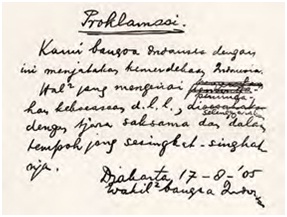 Proklamasi.
Kami bangsa Indonesia dengan
ini menjatakan kemerdekaan Indonesia.
Hal² jang mengenai
kekoeasaan d.l.l., diselenggarakan
dengan tjara saksama dan dalam
tempoh jang sesingkat-singkat
nja.
Djakarta, 17-8-'05
Wakil² bangsa Indonesia